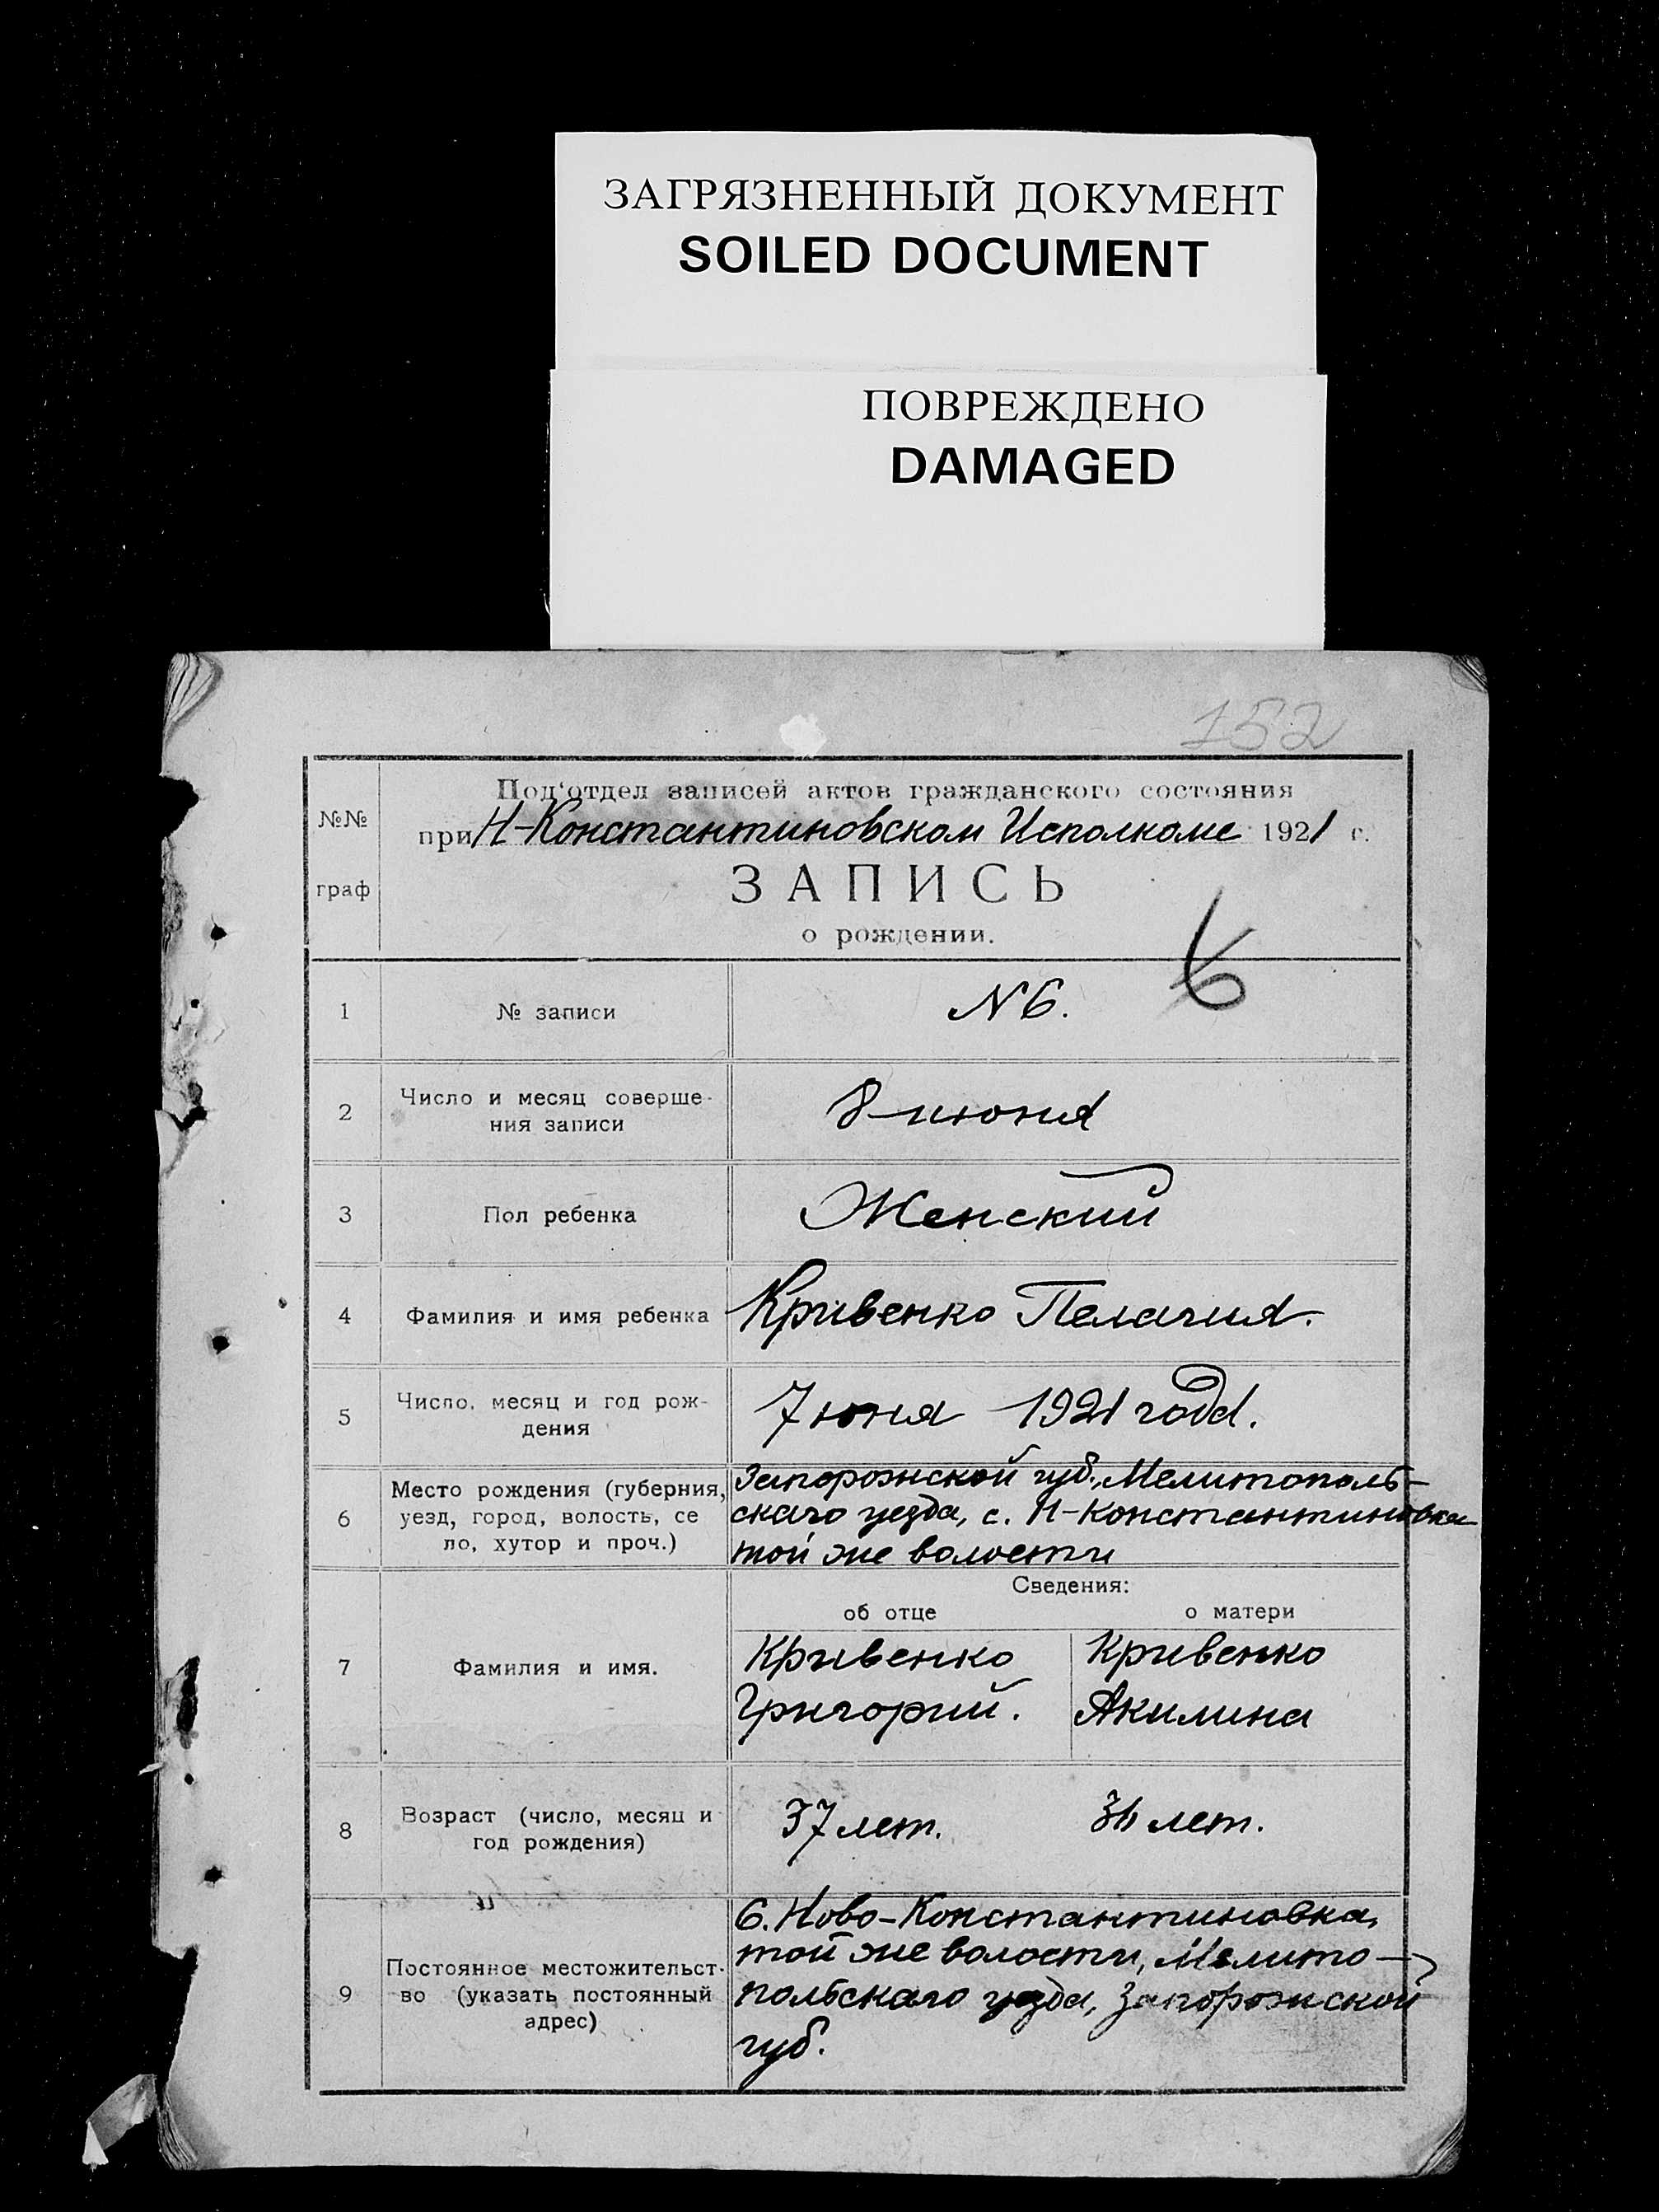 ЗАГРЯЗНЕННЫЙ ДОКУМЕНТ
SOILED DOCUMENT
ПОВРЕЖДЕНО
DAMAGED
152
№№
граф
Под‘отдел записей актов гражданского состояния
при Н-Константиновском Исполкоме 1921 г.
ЗАПИСЬ
о рождении.
6
1
№ записи
N 6.
2
Число и месяц соверше-
ния записи
8-июня
3
Пол ребенка
Женский
4
Фамилия и имя ребенка
Кривенко Пелагия.
5
Число, месяц и год рож-
дения
7 юня 1921 года.
6
Место рождения (губерния,
уезд, город, волость, се
ло, хутор и проч.)
Запорожской губ. Мелитополь-
скаго уезда, с. Н-Константиновка
той же волости
Сведения:
об отце
о матери
7
Фамилия и имя.
Кривенко
Григорий.
Кривенко
Акилина
8
Возраст (число, месяц и
год рождения)
37 лет.
лет.
9
Постоянное местожительст-
во (указать постоянный
адрес)
С. Ново-Константиновка,
той же волости, Мелито-
польскаго уезда, Запорожской
губ.